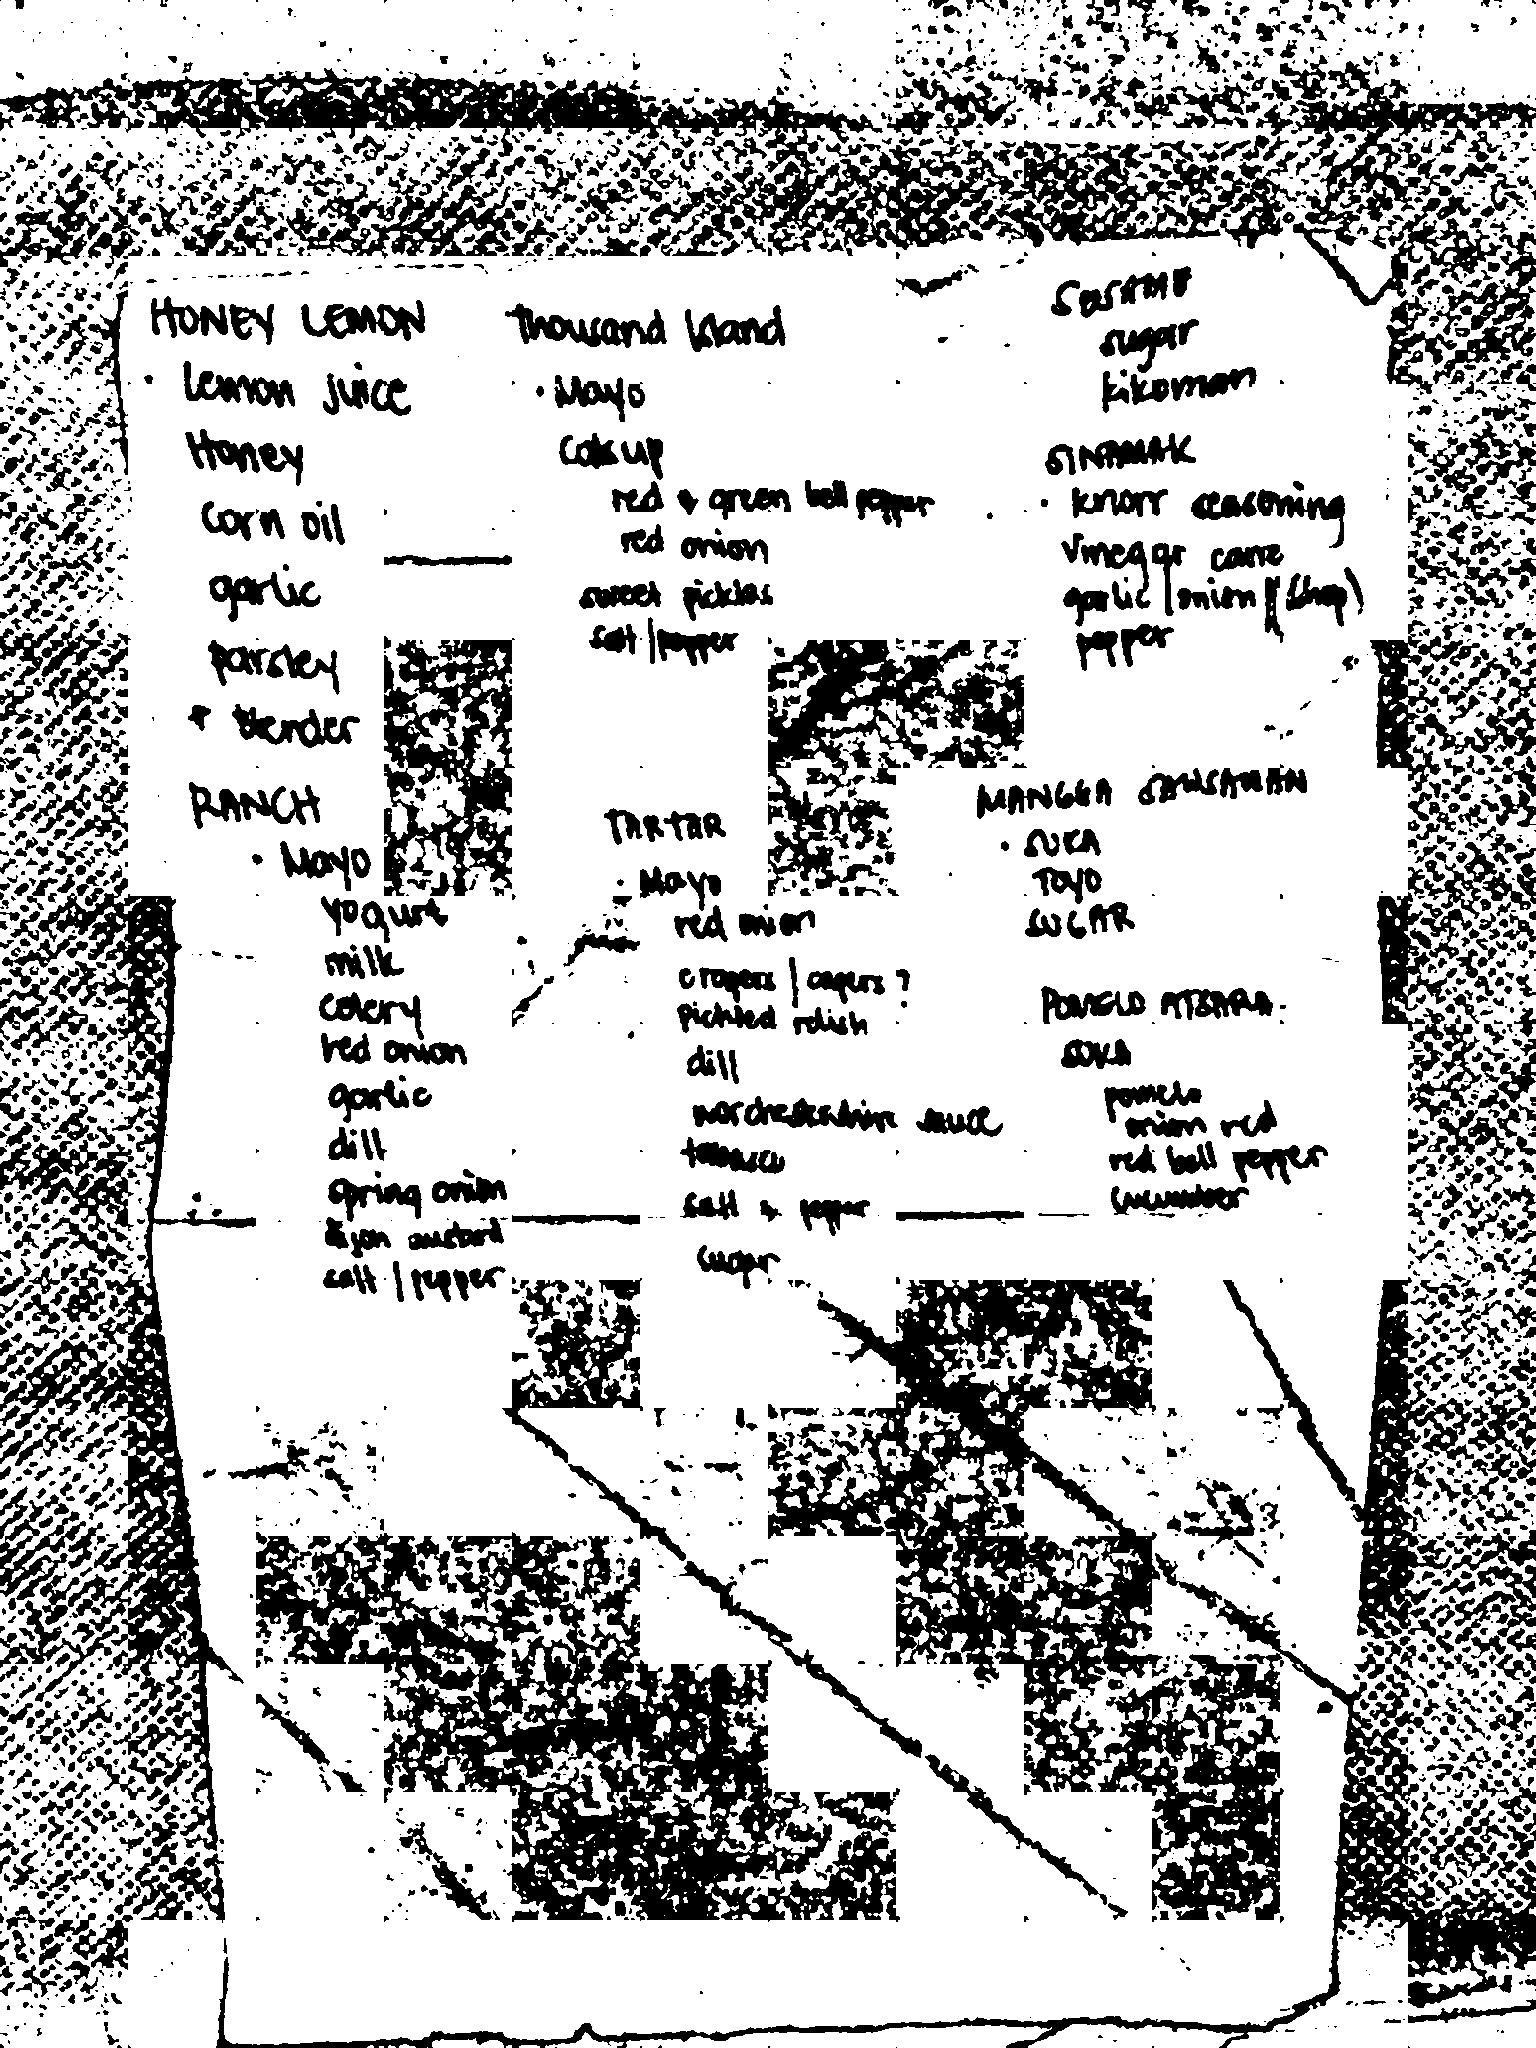 HONEY LEMON
· Lemon juice
Honey
corn oil
garlic
parsley
* blender
RANCH
· Mayo
yogurt
milk
celery
red onion
garlic
dill
spring onion
dijon mustard
salt / pepper
Thousand Island
· Mayo
catsup
red & green bell pepper
red onion
sweet pickles
salt / pepper
TARTAR
· Mayo
red onion
crapers / capers ?
pickled relish
dill
worchestershire sauce
tabasco
salt & pepper
sugar
SESAME
sugar
kikoman
SINAMAK
· knorr seasoning
vinegar cane
garlic / onion (chop)
pepper
MANGGA SAWSAWAN
· SUKA
TOYO
SUGAR
POMELO ATSARA
SUKA
pomelo
onion red
red bell pepper
cucumber